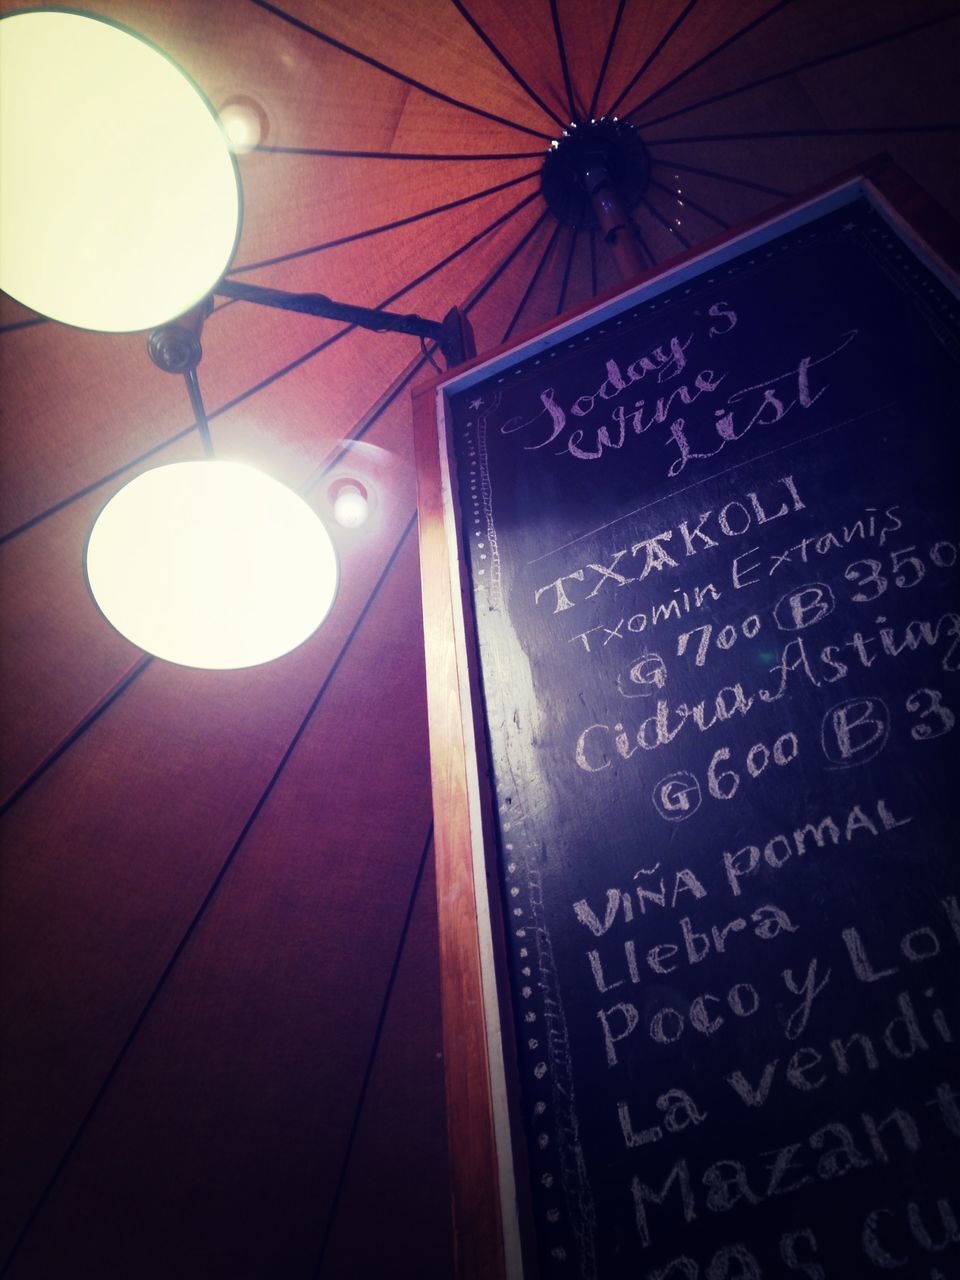 Today's
Wine
List
TXAKOLI
Txomin Extanis
G 700 B 350
Cidra Astiaz
G 600 B 3
VIÑA POMAL
Llebra
Poco y Lol
La vendi
Mazant